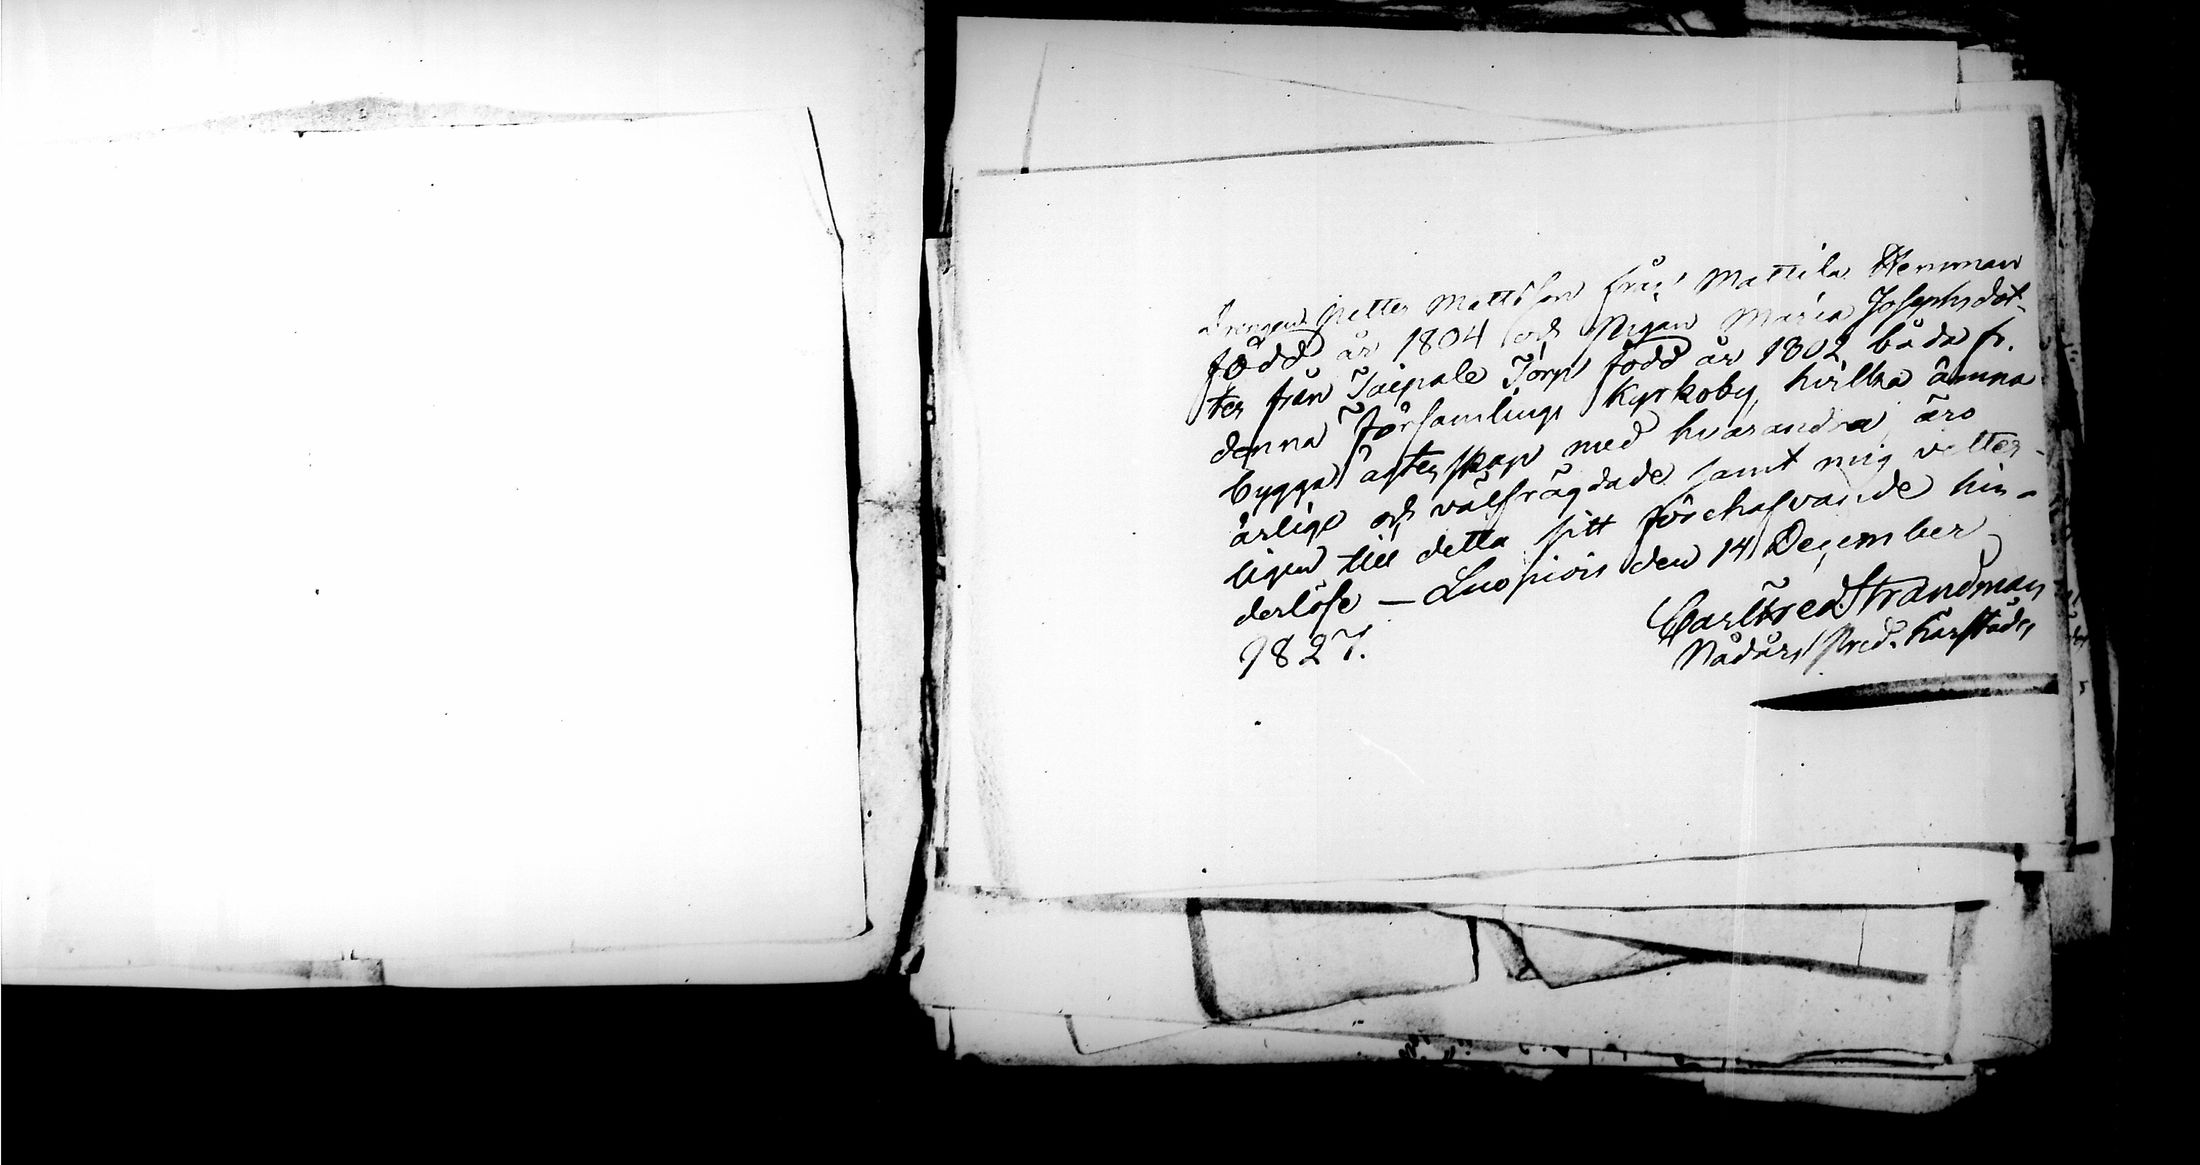 Drengen Petter Mattsson från Mattila Hemman
född år 1804 och Pigan Maria Josephsdot-
ter från Taipale Torp född år 1802 båda fr.
denna Församlings Kyrkoby, hvilka ämna
bygga ägtenskap med hvarandra, äro
ärlige och välfrägdade samt mig vetter-
ligen till detta sitt förehafvande hin-
derlöse — Luopiois den 14 December
1827.
Carl Fred. Strandman
Nådårs Pred. härstädes